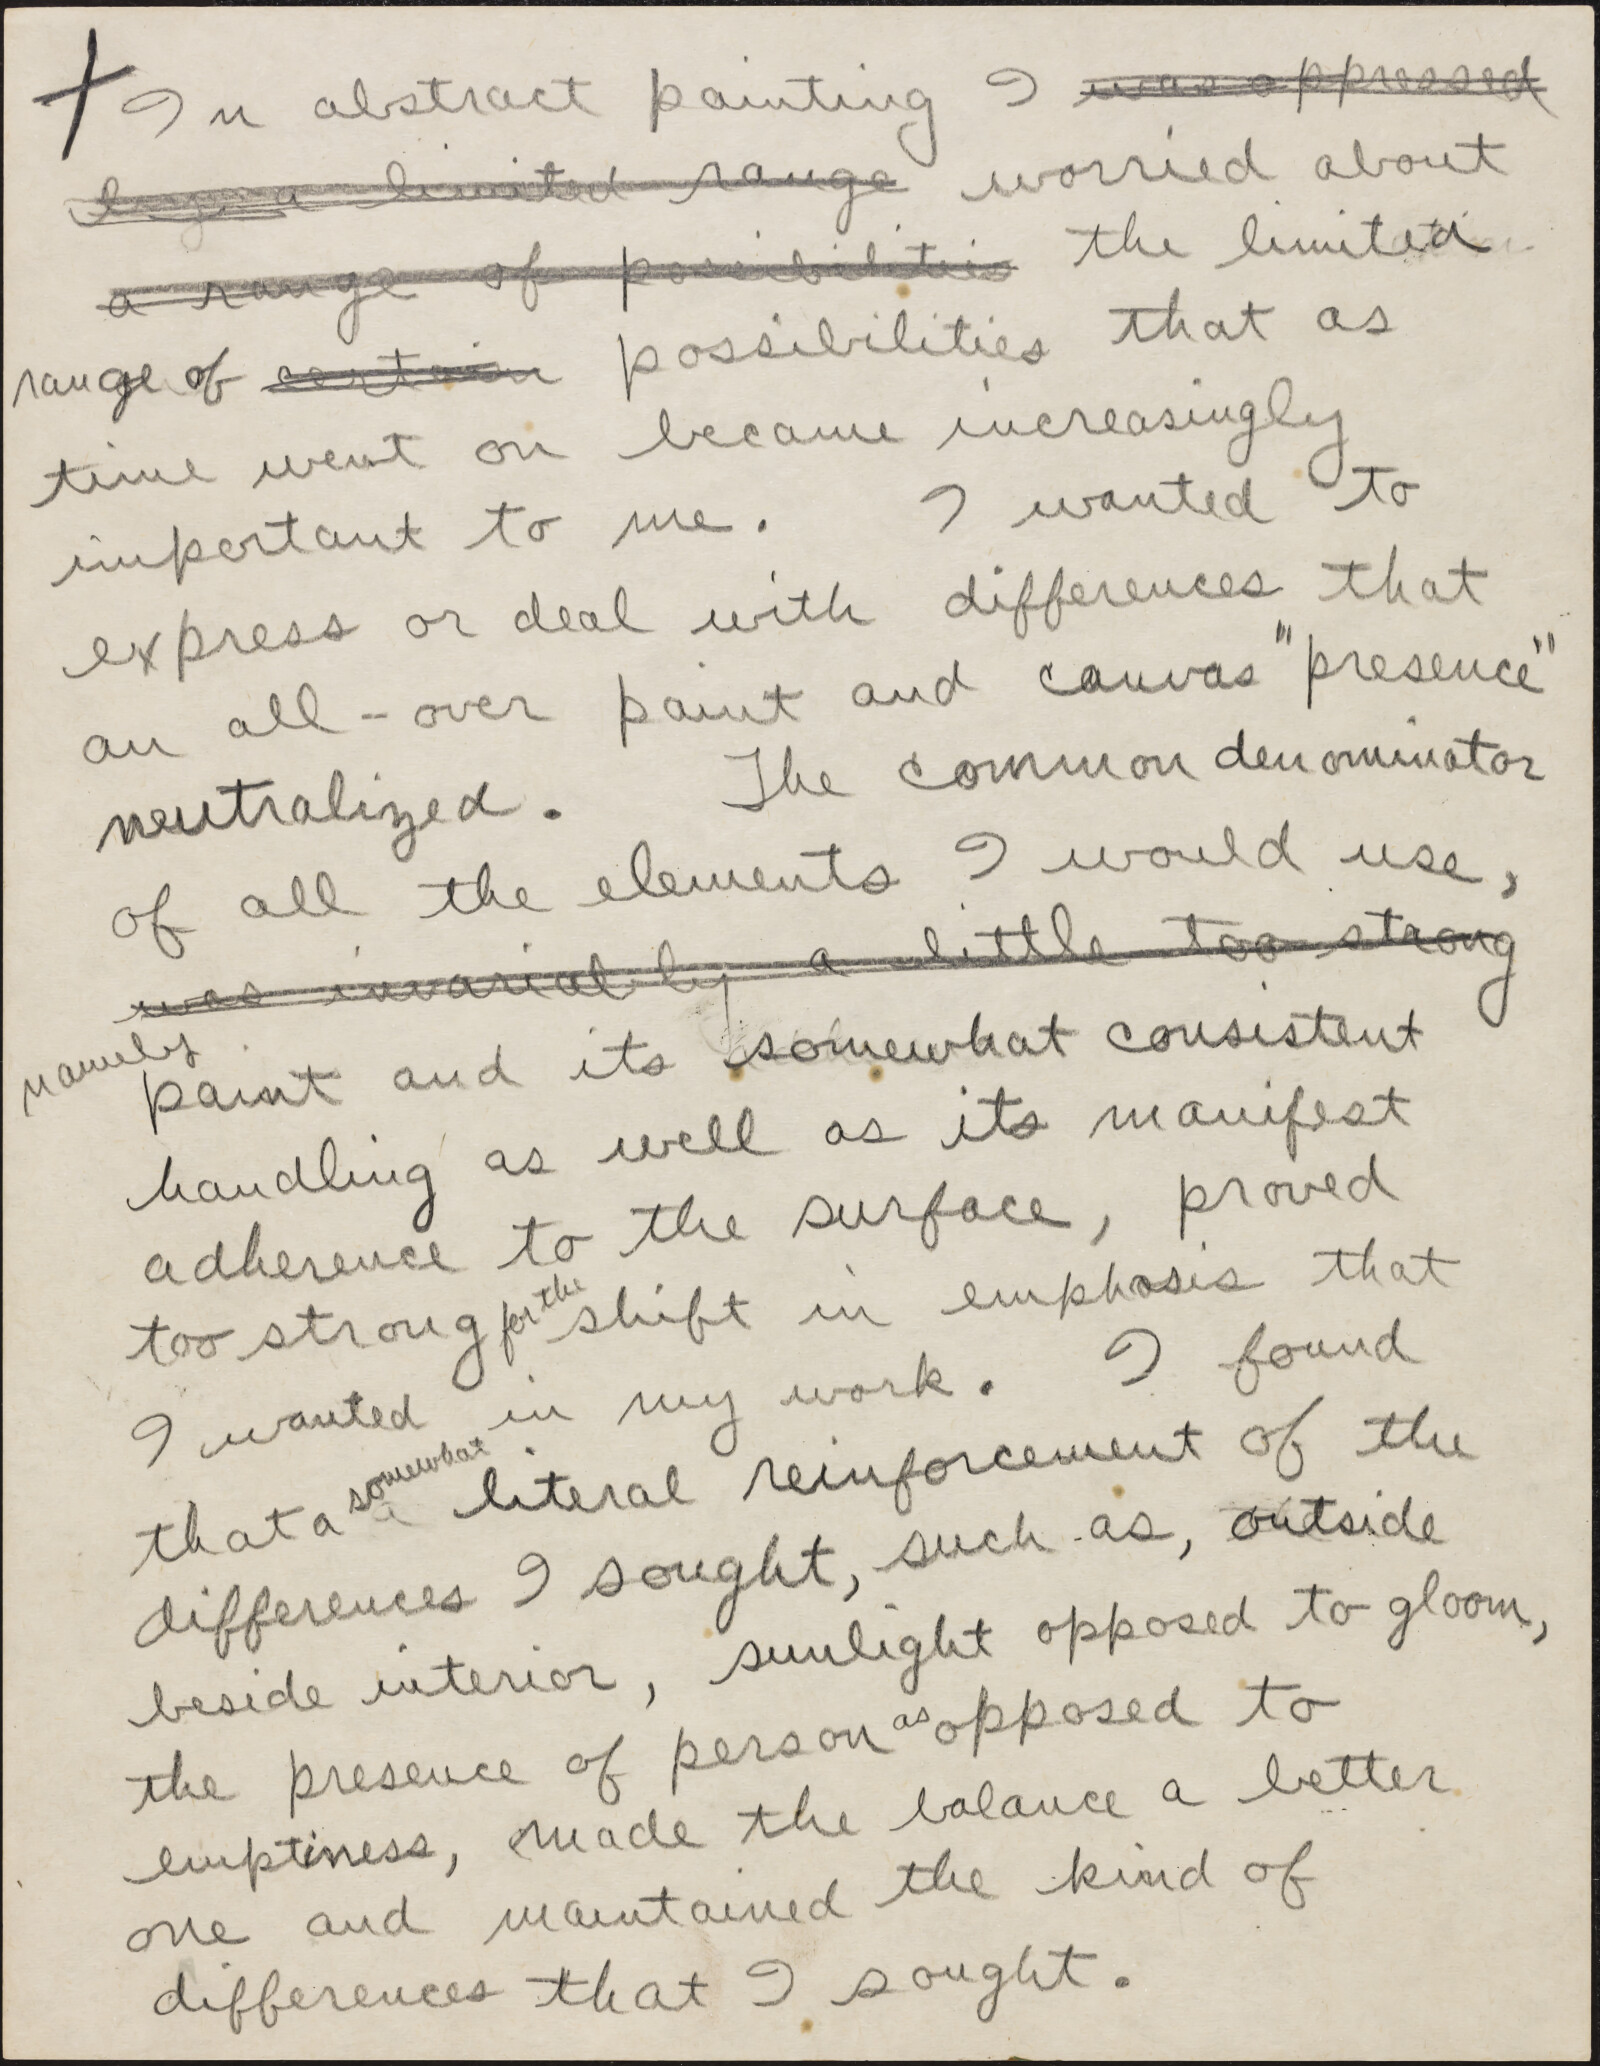 In abstract painting I was oppressed
by a limited range worried about
a range of possibilities the limited
range of certain possibilities that as
time went on became increasingly
important to me. I wanted to
express or deal with differences that
an all-over paint and canvas "presence"
neutralized. The common denominator
of all the elements I would use,
was invariably a little too strong
namely
paint and its somewhat consistent
handling as well as its manifest
adherence to the surface, proved
too strong for the shift in emphasis that
I wanted in my work. I found
that a somewhat literal reinforcement of the
differences I sought, such as, outside
beside interior, sunlight opposed to gloom,
the presence of person as opposed to
emptiness, made the balance a better
one and maintained the kind of
differences that I sought.